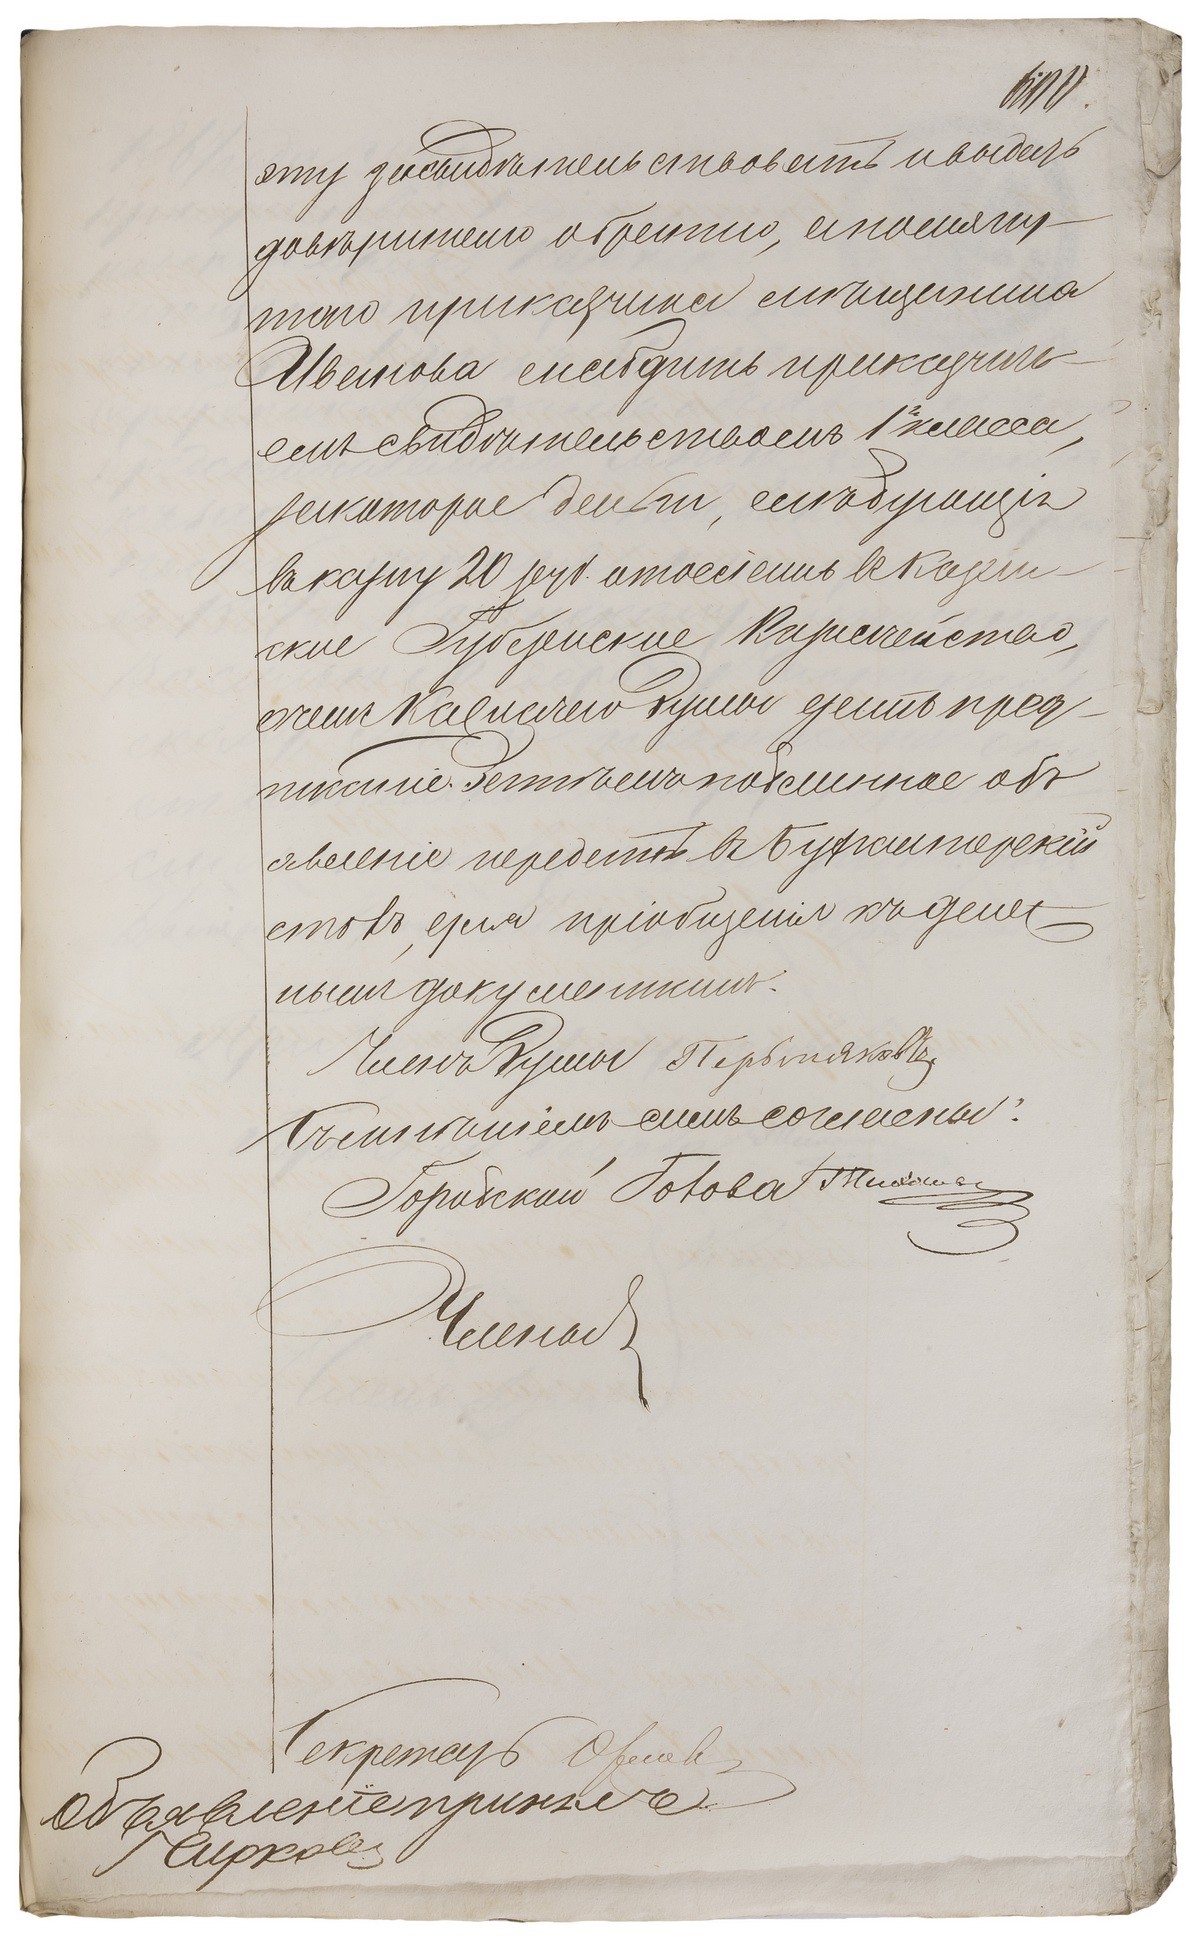 эту засвидѣтельствовать и выдать
довѣрителю обратно, а помяну-
таго прикащика мѣщанина
Иванова снабдить прикащичь-
имъ свидѣтельствомъ 1го класса,
за которое деньги, слѣдующія
въ казну 20 руб. отослать въ Казан-
ское Губернское Казначейство,
о чемъ Казначею Думы дать пред-
писаніе. Затѣмъ подлинное объ
явленіе передать въ Бухгалтерскій
столъ, для пріобщенія къ денеж
нымъ документамъ.
Членъ Думы
Съ мнѣніемъ симъ согласны:
Городской Голова
Члены
Секретарь Орлов
Объявленіе принялъ